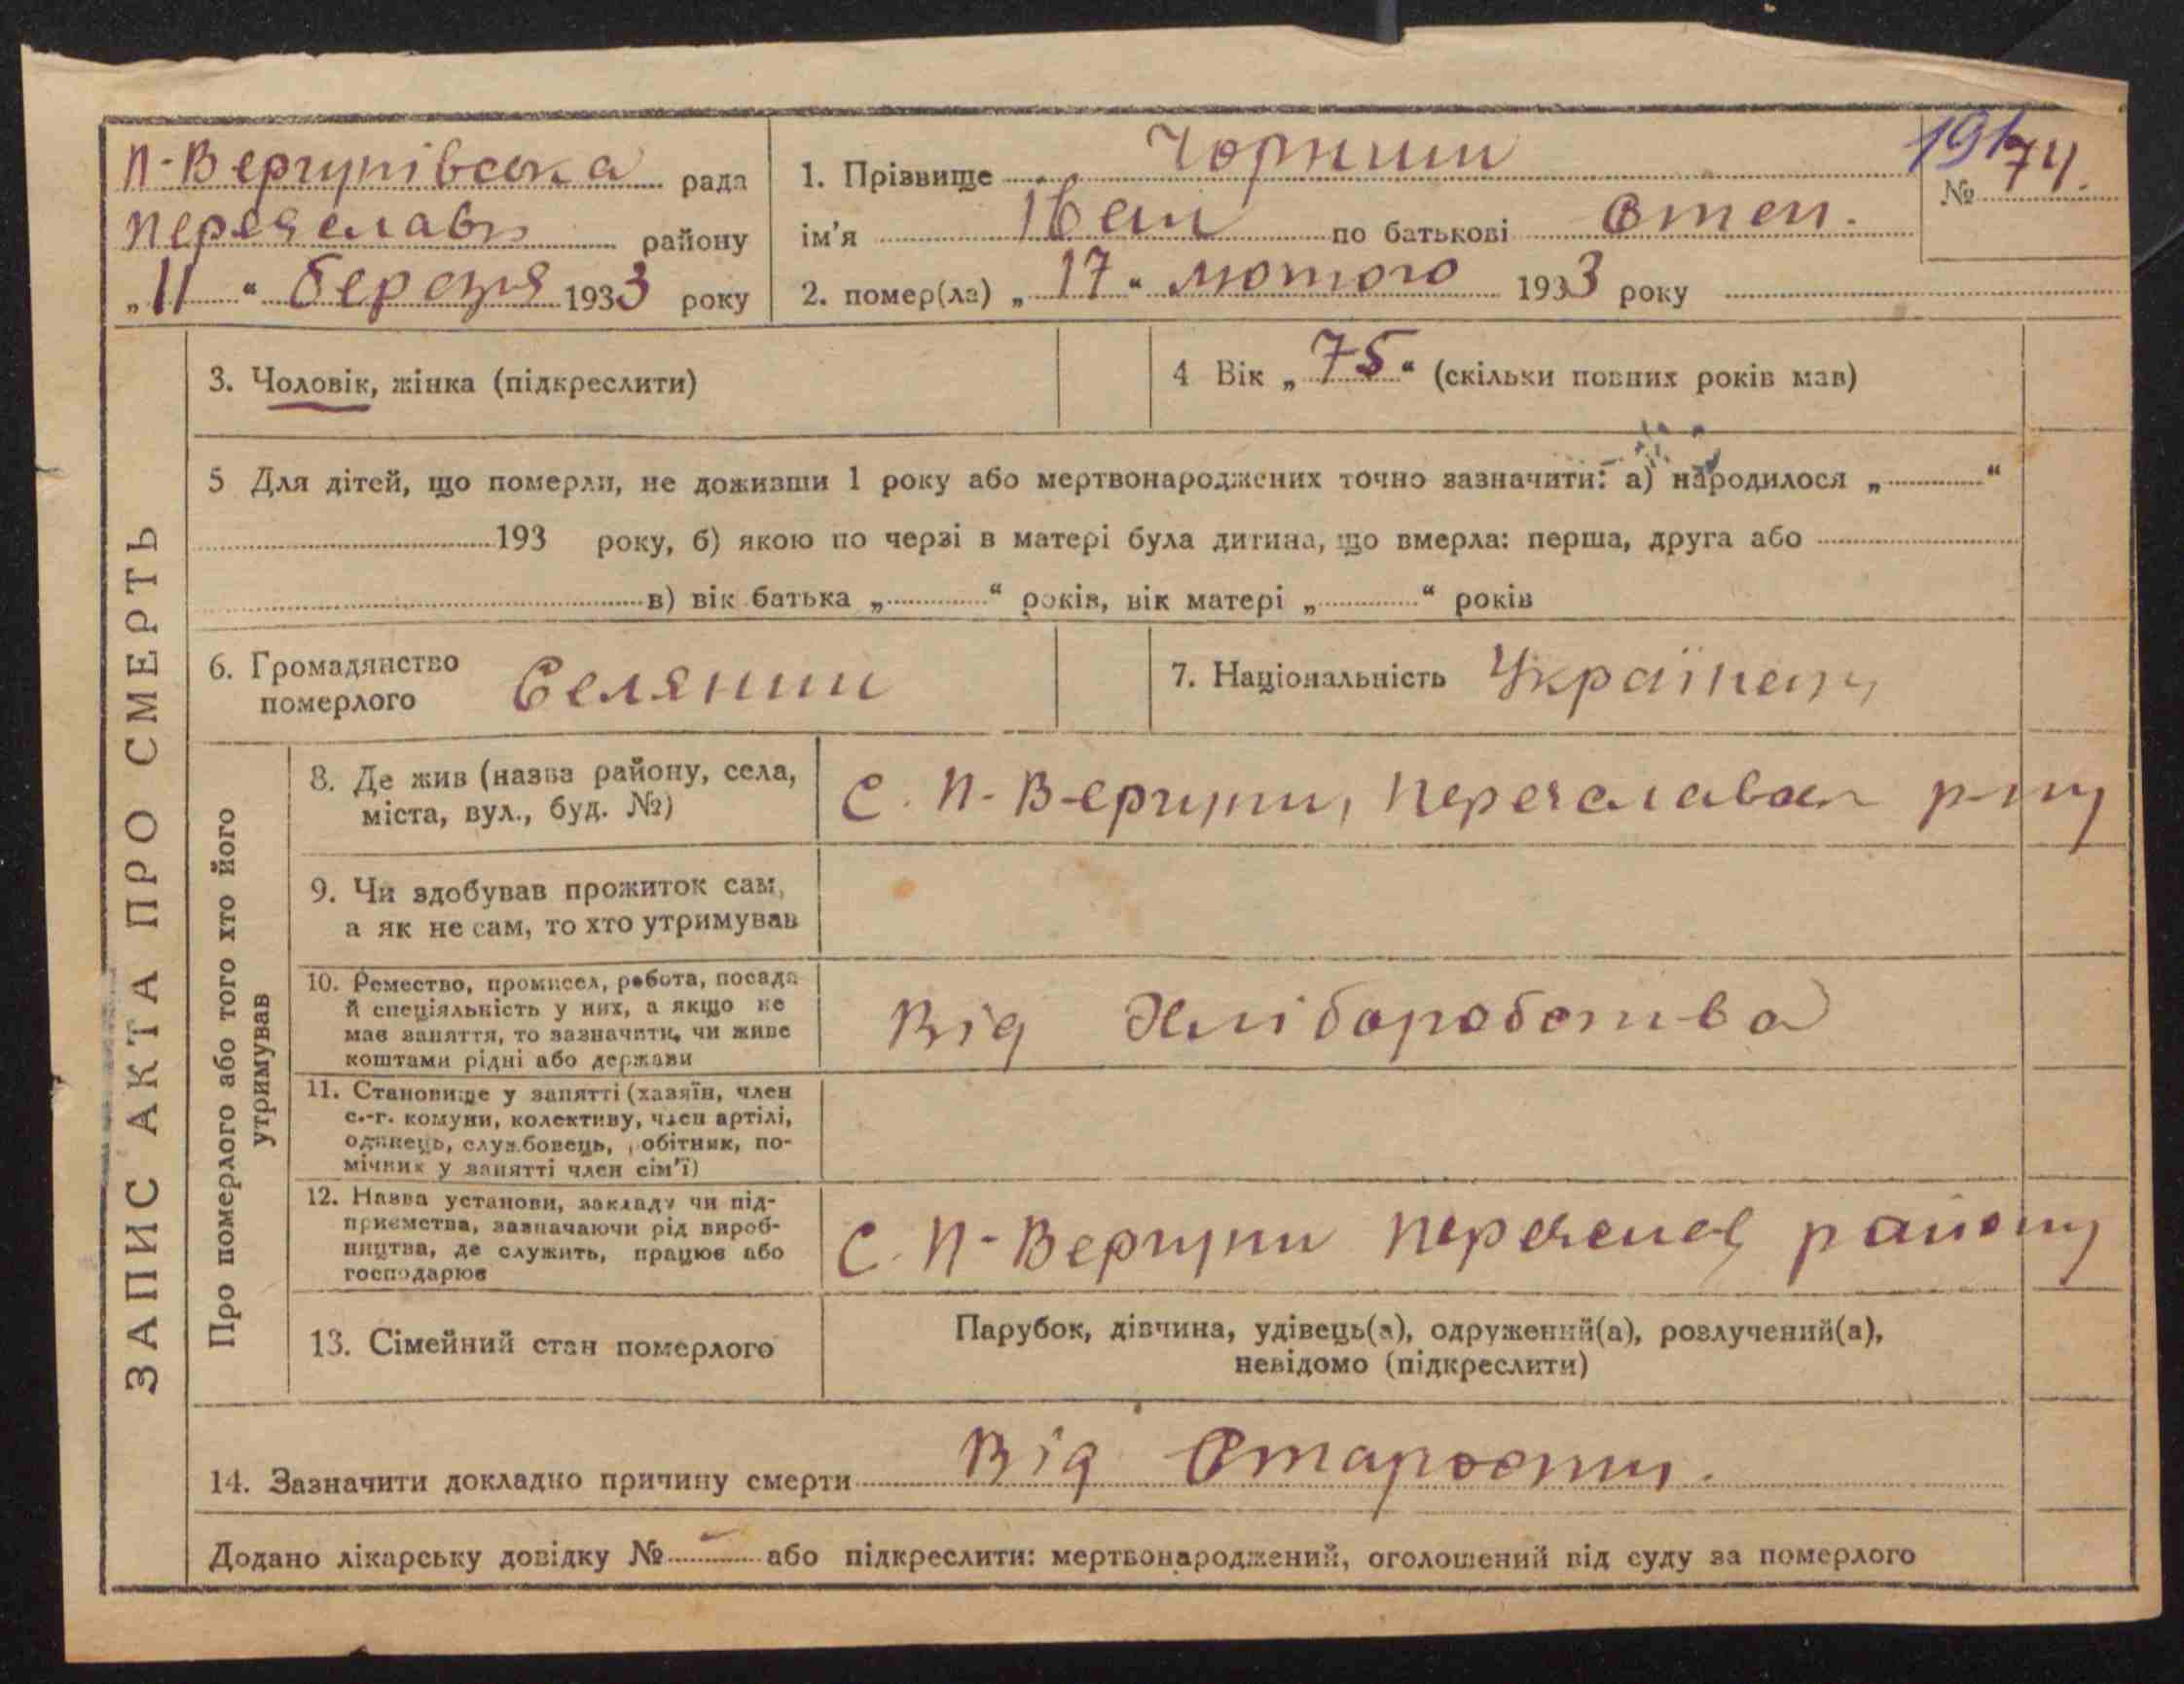 П-Вергунівська рада
Переяславн району
„11“ березня 1933 року
1. Прізвище Чорний
ім'я Іван по батькові Степ.
2. помер(ла) „17“ лютого 1933 року
191
№ 74.
ЗАПИС АКТА ПРО СМЕРТЬ
3. Чоловік, жінка (підкреслити)
4 Вік „75“ (скільки повних років мав)
5 Для дітей, що померли, не доживши 1 року або мертвонароджених точно зазначити: а) народилося „ “
193 року, б) якою по черзі в матері була дитина, що вмерла: перша, друга або
в) вік батька „ “ років, вік матері „ “ років
6. Громадянство
померлого Селянин
7. Національність Українець
Про померлого або того хто його
утримував
8. Де жив (назва району, села,
міста, вул., буд. №)
С. П-Вергуни, Переяславськ р-ну
9. Чи здобував прожиток сам,
а як не сам, то хто утримував
10. Ремество, промисел, робота, посада
й спеціяльність у них, а якщо не
мав заняття, то зазначити, чи живе
коштами рідні або держави
Від Хліборобства
11. Становище у занятті (хазяїн, член
с.-г. комуни, колективу, член артілі,
одинець, службовець, робітник, по-
мічник у занятті член сім'ї)
12. Назва установи, закладу чи під-
приємства, зазначаючи рід вироб-
ництва, де служить, працює або
господарює
С. П-Вергуни Переяслав району
13. Сімейний стан померлого
Парубок, дівчина, удівець(а), одружений(а), розлучений(а),
невідомо (підкреслити)
14. Зазначити докладно причину смерти Від Старости.
Додано лікарську довідку № - або підкреслити: мертвонароджений, оголошений від суду за померлого